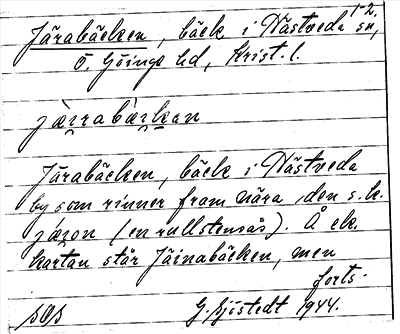 1-2.
Järabäcken, bäck i Västveda sn,
Ö. Göinge hd, Krist. l.
jærrabækkan
Järabäcken, bäck i Västveda
by som rinner fram nära den s.k.
jæron (en rullstensås). Å ek.
kartan står Jäinabäcken, men
forts.
SOS G. Sjöstedt 1944.